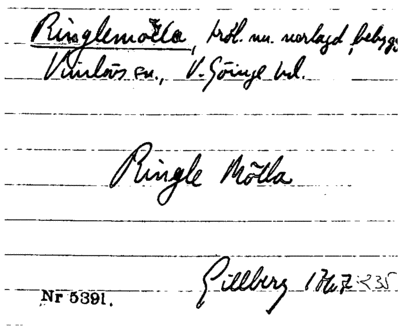 Ringlemölla, trol. nu. nerlagd bebygg
Vinslövs sn., V. Göinge hd.
Ringle Mölla
Gillberg 1767:235
Nr 5391.